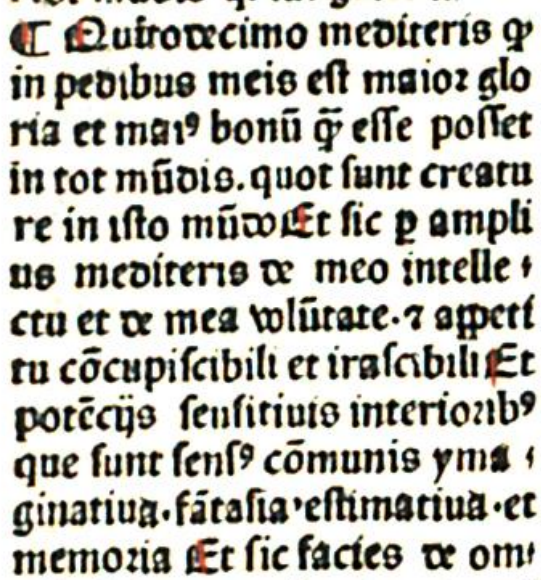 ¶ Qu̅rtodecimo mediteris qꝫ
in pedibus meis est maioꝛ glo
ria et maiꝰ bonū qꝫ̄ esse posset
in tot mūdis. quot sunt creatu
re in isto mūdo Et sic ꝑ ampli
us mediteris de meo intelle ⸗
ctu et de mea volūtate. ⁊ appeti
tu cōcupiscibili et irascibili Et
potēcijs sensitiuis interioꝛibꝰ
que sunt sensꝰ cōmunis yma ⸗
ginatiua. fātasia ʼestimatiua. et
memoꝛia Et sic facies de om⸗